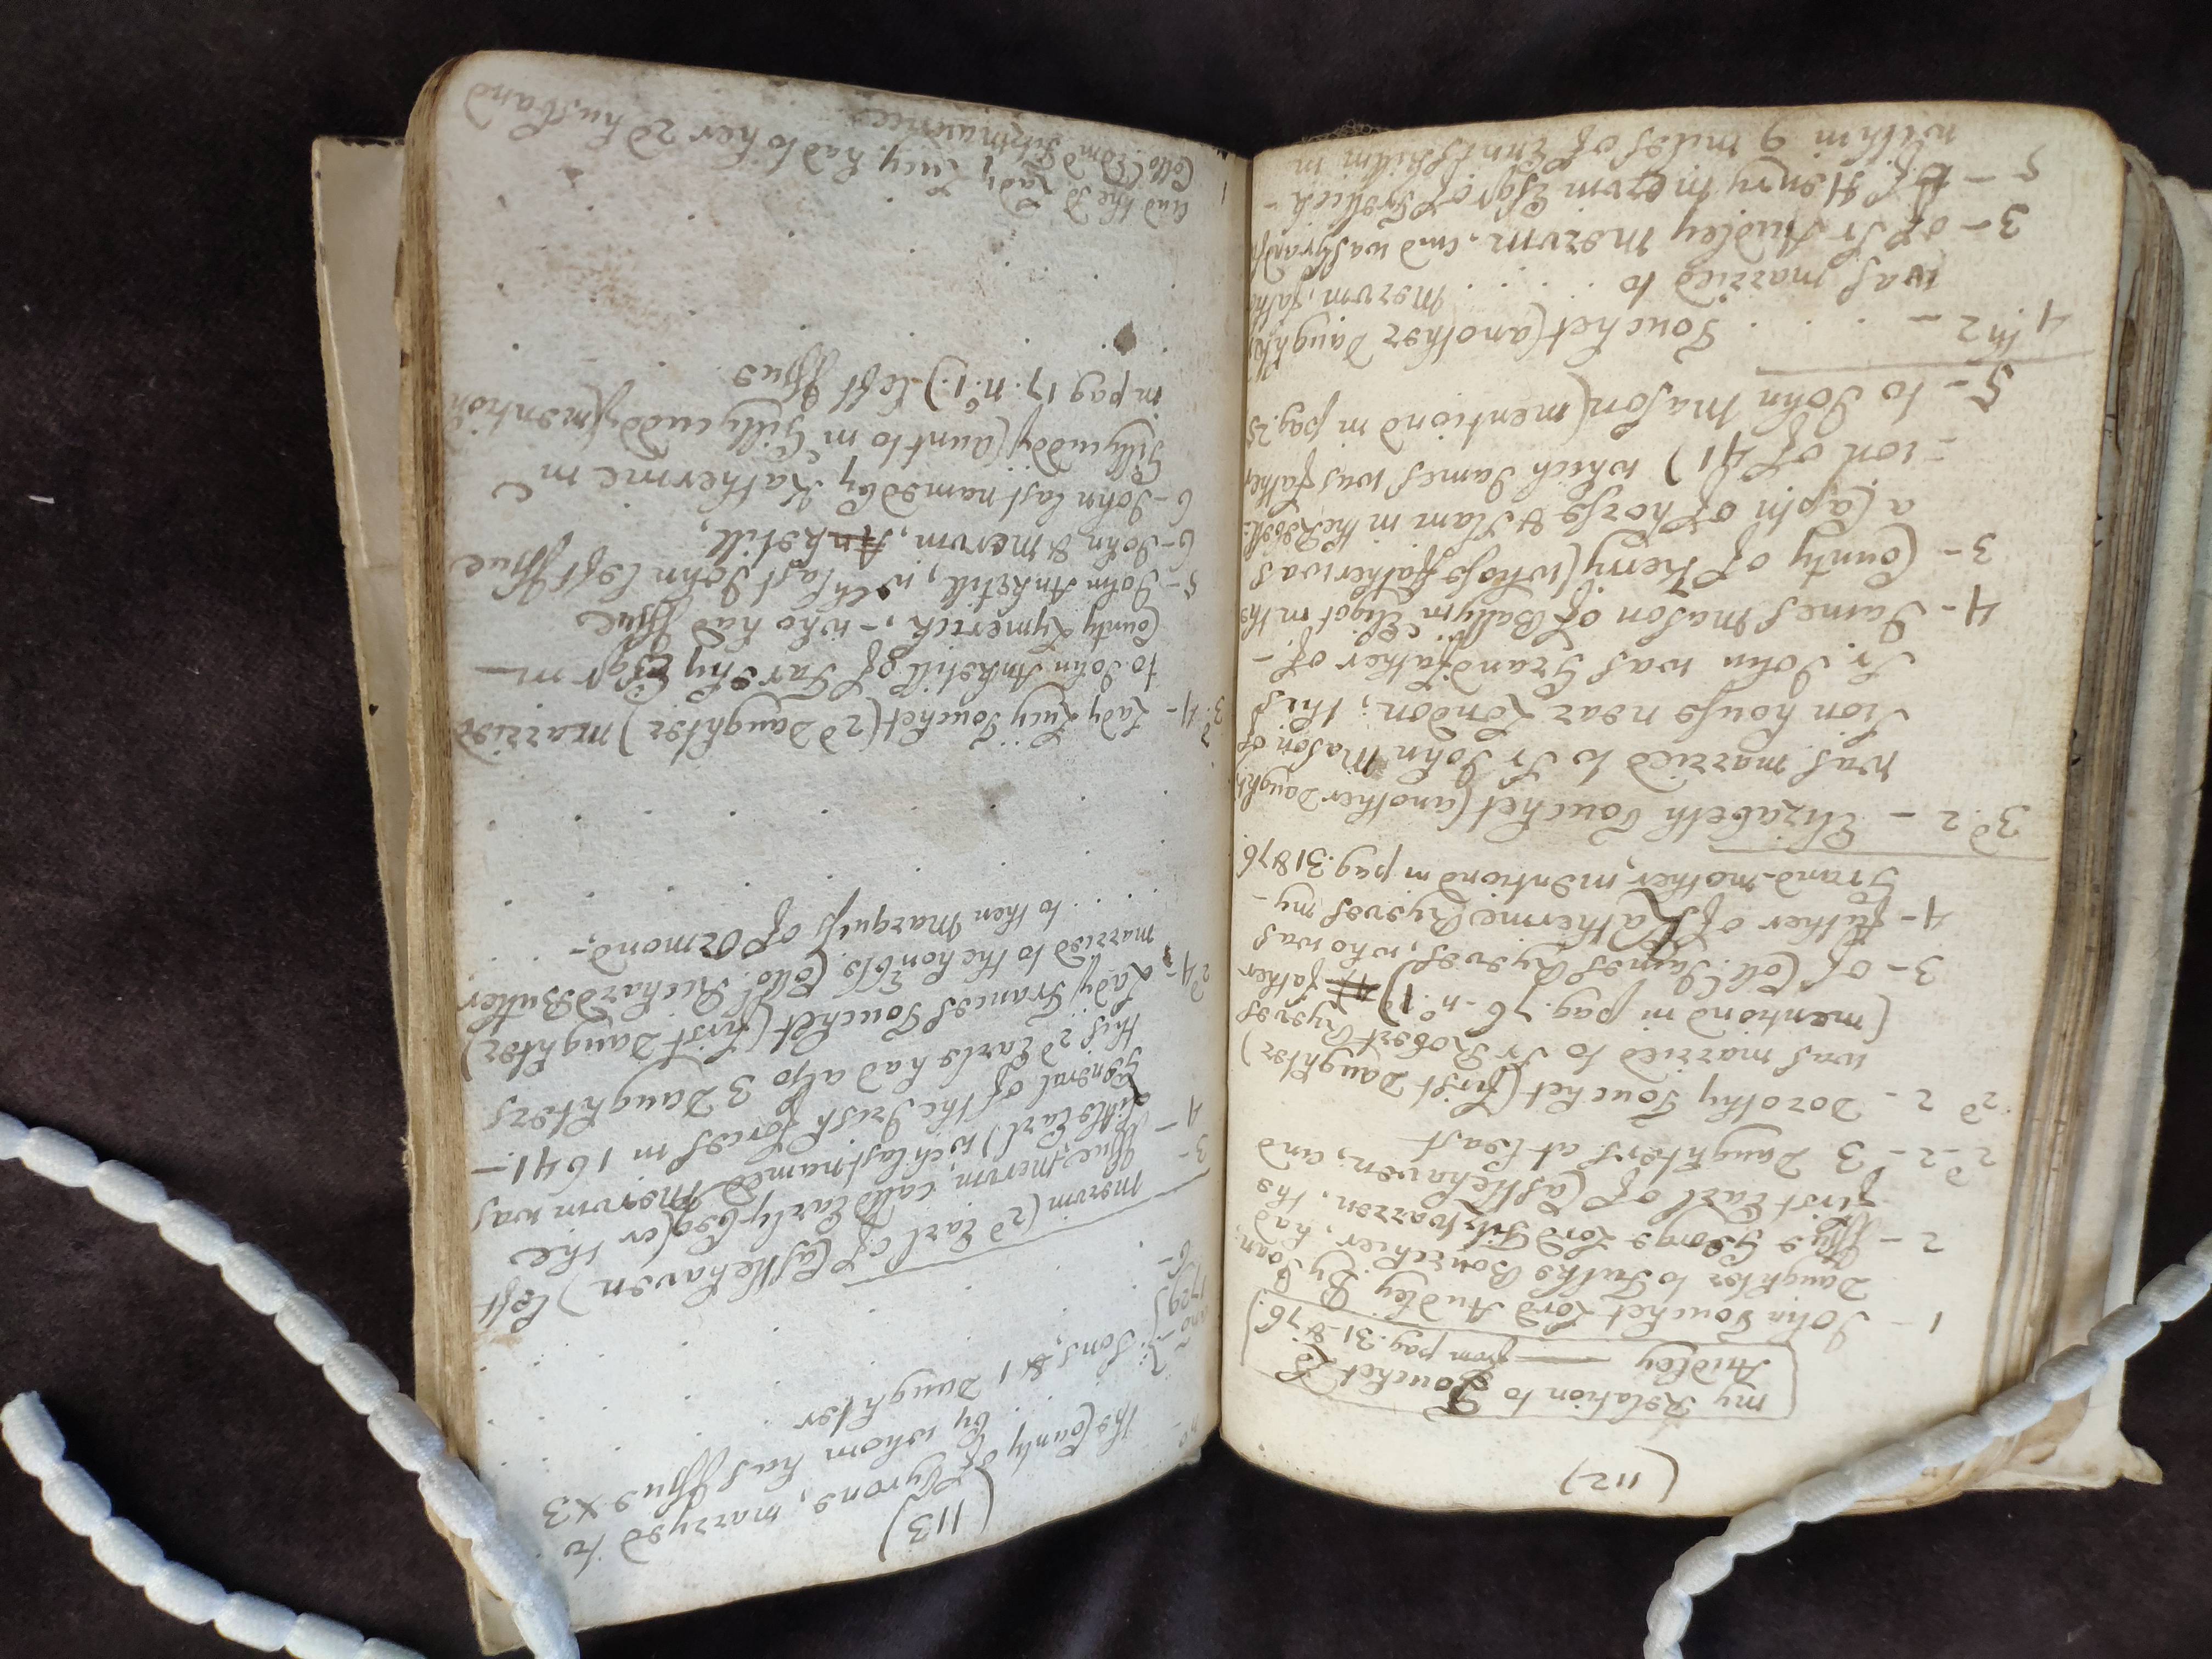 (112)
my Relation to Touchet Ld
Audley — from pag. 31 & 76.)
1 - John Touchet Lord Audley By Joan
Daughter to Fulke Bourchier, had
2 - Issue George Lord Fitzwarren, the
first Earl of Castlehaven; and
2d - 2 - 3 Daughters at least
2d 2 - Dorothy Touchet (first Daughter)
was married to Sr Robert Ryeves
(mentiond in pag. 76 - no. 1) father
3 - of Coll. James Ryeves, who was
4 - father of Katherine Ryeves my -
Grand-mother, mentiond in pag. 31 & 76
3d. 2 - Elizabeth Touchet (another Daught.
was married to Sr John Mason of
Sion house near London; this
Sr. John was Grandfather of -
4 - James Mason of Ballym Eligot in the
3 - County of Kerry (whose father was
a Captn of horse & slain in the Rebell:
= ion of 41) which James was father
5 - to John Mason (mentiond in pag. 25
4th 2 - . . . Touchet (another Daughter,
was married to . . . Mervin, fathe
3 - of Sr Audley Mervin, and was grandf
5 - of Henry Mervin Esqr of Trellick -
within 9 miles of Enniskillin in
(113)
The County of Tyrone, marryed to
. . . by whom has Issue x 3
3 Sons, & 1 Daughter
ano
1729
6 -
Mervin (2d Earl of Castlehaven) left
3 - Issue Mervin, calld Early beg (or the
4 - Little Earl) wch last named Mervin was
General of the Irish forces in 1641. -
this 2d Earle had also 3 Daughters
2d 4 - Lady Frances Touchet (first Daughter)
married to the honble Collo. Richard Butler
. . . to then Marquiss of Ormond, -
3d. 4 - Lady Lucy Touchet (2d Daughter) married
to John Anketill of Farrihy Esqr in —
County Lymerick, - who had Issue
5 - John Anketill, wch last John left Issue
6 - John & Mervin, Anketill,
6 - John last named by Katherine Mc
Gillycuddy (aunt to Mc Gillycuddy (mention
in pag 17. no. 1.) left Issue
and the sd Lady Lucy had to her 2d husband
Collo. Edmd Fitzmaurice